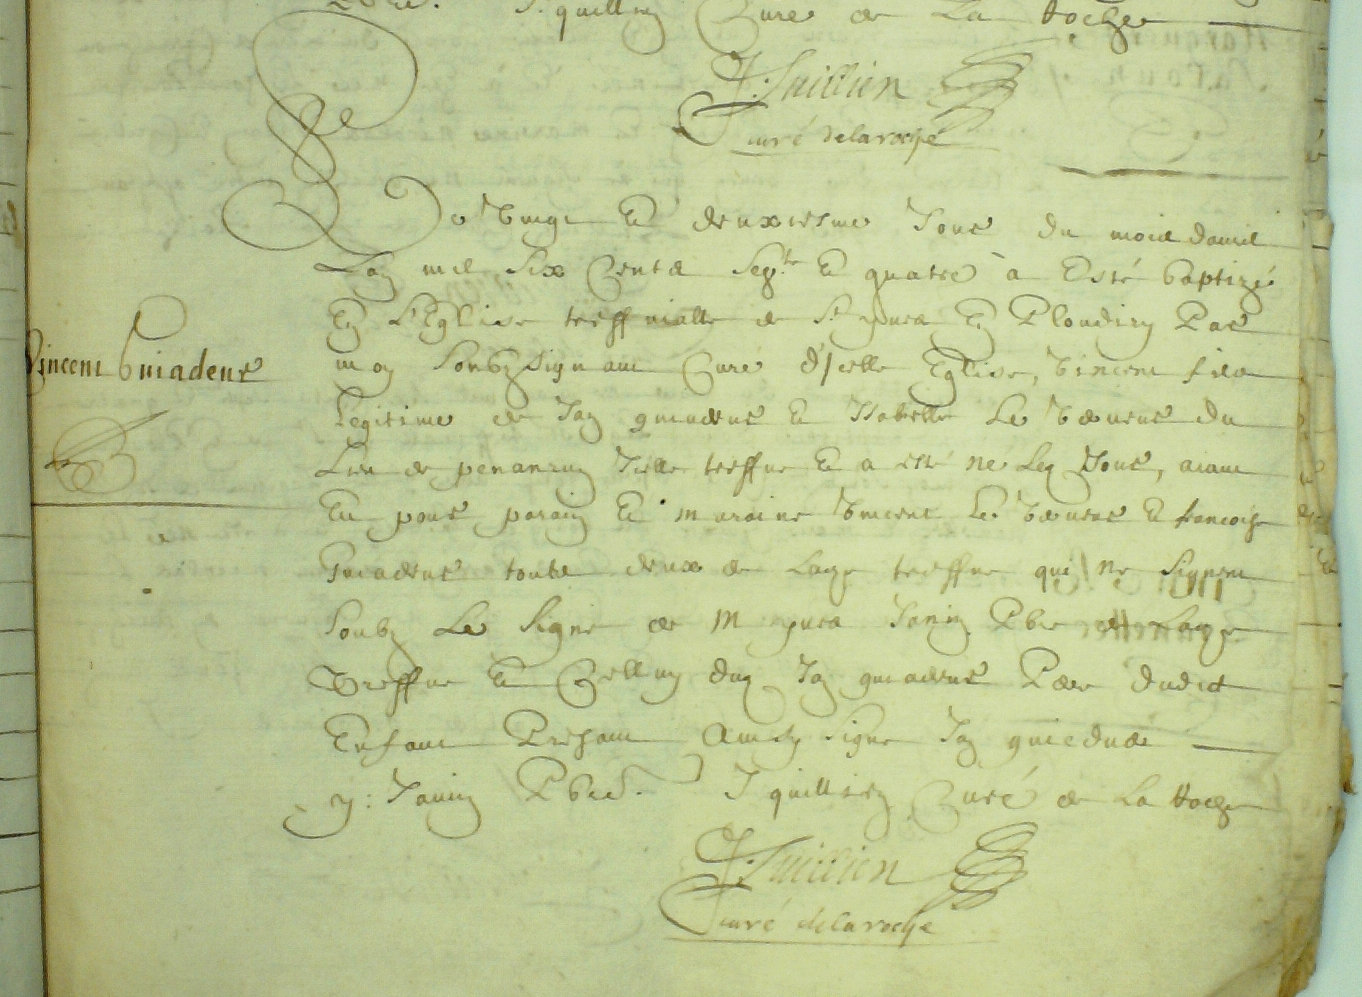 J. quillien Curé de La Roche
J. Guillien
curé delaroche
Du Vingt Et deuxiesme Jour du mois davril
Lan mil Six Cents Sept.te Et quatre a Esté baptizé
En L'Eglise treffvialle de St yves En Ploudiry Par
moy Soubz Signant Curé d'Jcelle Eglise, Vincent fils
Vincent Guiadeur
Legitime de Jan guiadeur Et Isabelle Le
du
Lieu de Jcelle treffve Et a esté né Led Jour, aiant
Eu pour parain Et maraine Vincent Le Et francoise
Guiadeur touts deux de Lad treffve qui Ne Signent
Soubz Le Signe de M yves Janin Pbre de Lad
Treffve Et Celluy dud Jan guiadeur Pere dudict
Enfant Present Ainsy Signe Jan guiedeur
y: Janin Pbre. J quillien Curé de La Roche
J. Guillien
curé delaroche